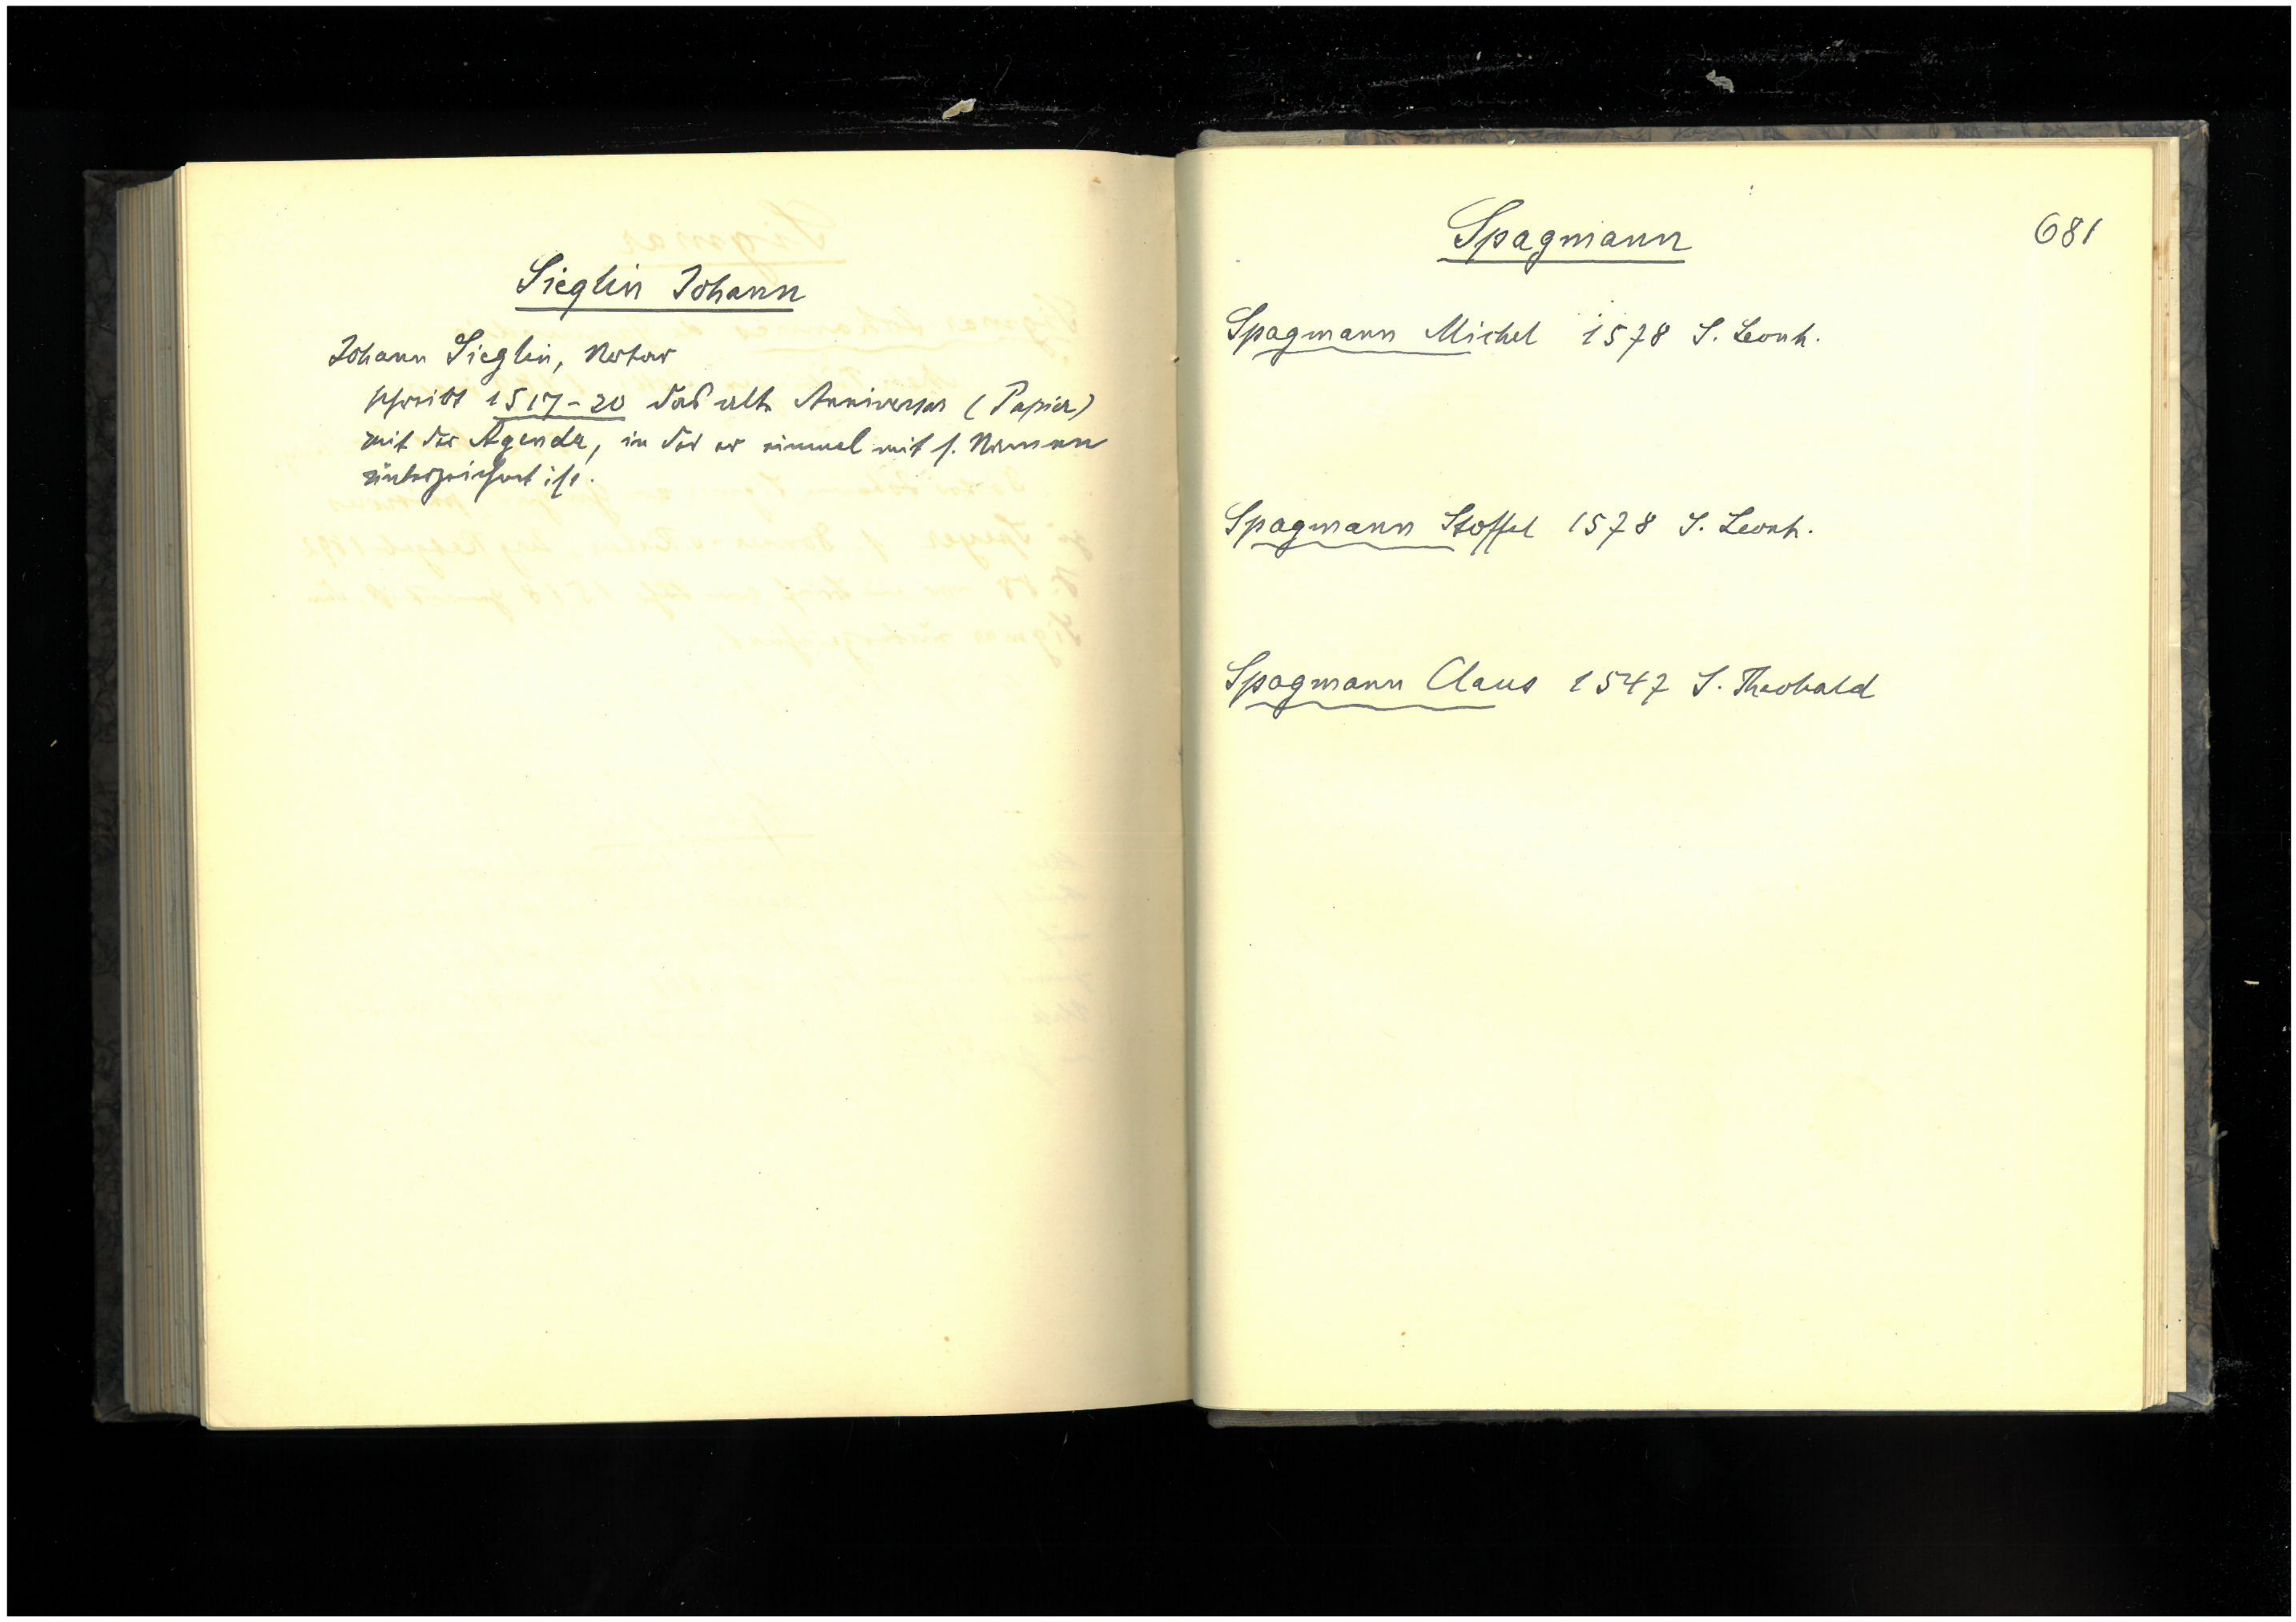 Sieglin Johann
Johann Sieglin, Notar
schreibt 1517-20 das alte Anniversar (Papier)
mit der Agenda, in der er einmal mit s. Namen
unterzeichnet ist.
Spagmann
681
Spagmann Michel 1578 S. Leonh.
Spagmann Stoffel 1578 S. Leonh.
Spagmann Claus 1547 S. Theobald